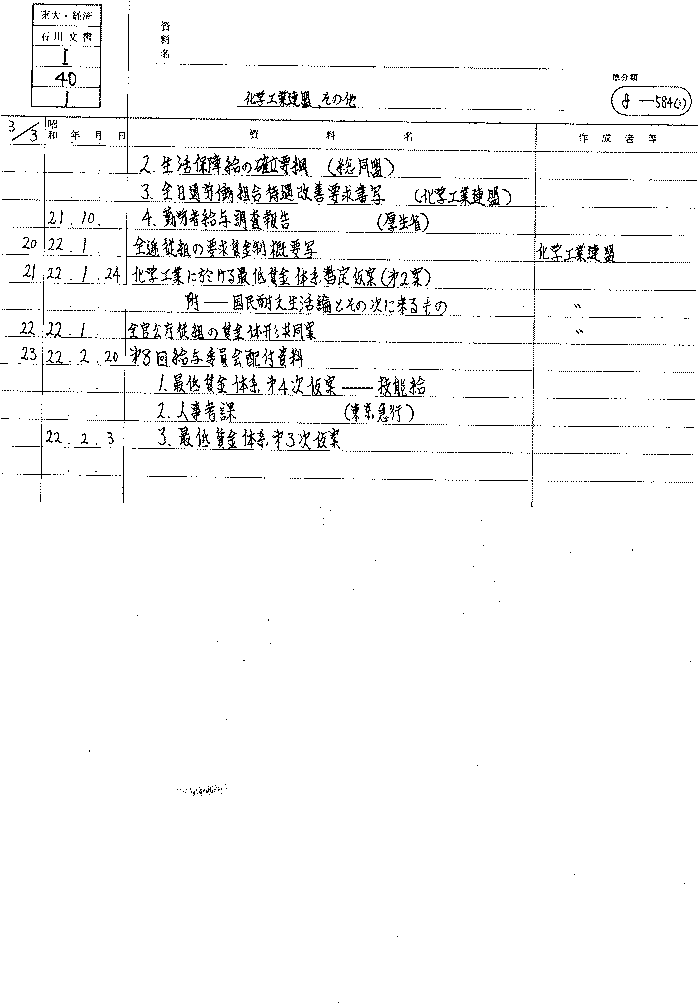 東大・経済
石川文書
I
40
1
資料名
化学工業連盟、その他
原分類
8—584(3)
3/3 昭和 年 月 日 資料名 作成者等
2. 生活保障給の確立要綱 (総同盟)
3. 全日通労働組合待遇改善要求書写 (化学工業連盟)
21. 10. 4. 勤労者給与調査報告 (厚生省)
20 22. 1. 全逓従組の要求賃金制概要写 化学工業連盟
21 22. 1. 24 化学工業に於ける最低賃金体系暫定仮案(第2案)
附——国民耐乏生活論とその次に来るもの 〃
22 22. 1. 全官公庁従組の賃金体形共同案 〃
23 22. 2. 20 第8回給与委員会配付資料
1. 最低賃金体系第4次仮案------技能給
2. 人事考課 (東京急行)
22. 2. 3 3. 最低賃金体系第3次仮案